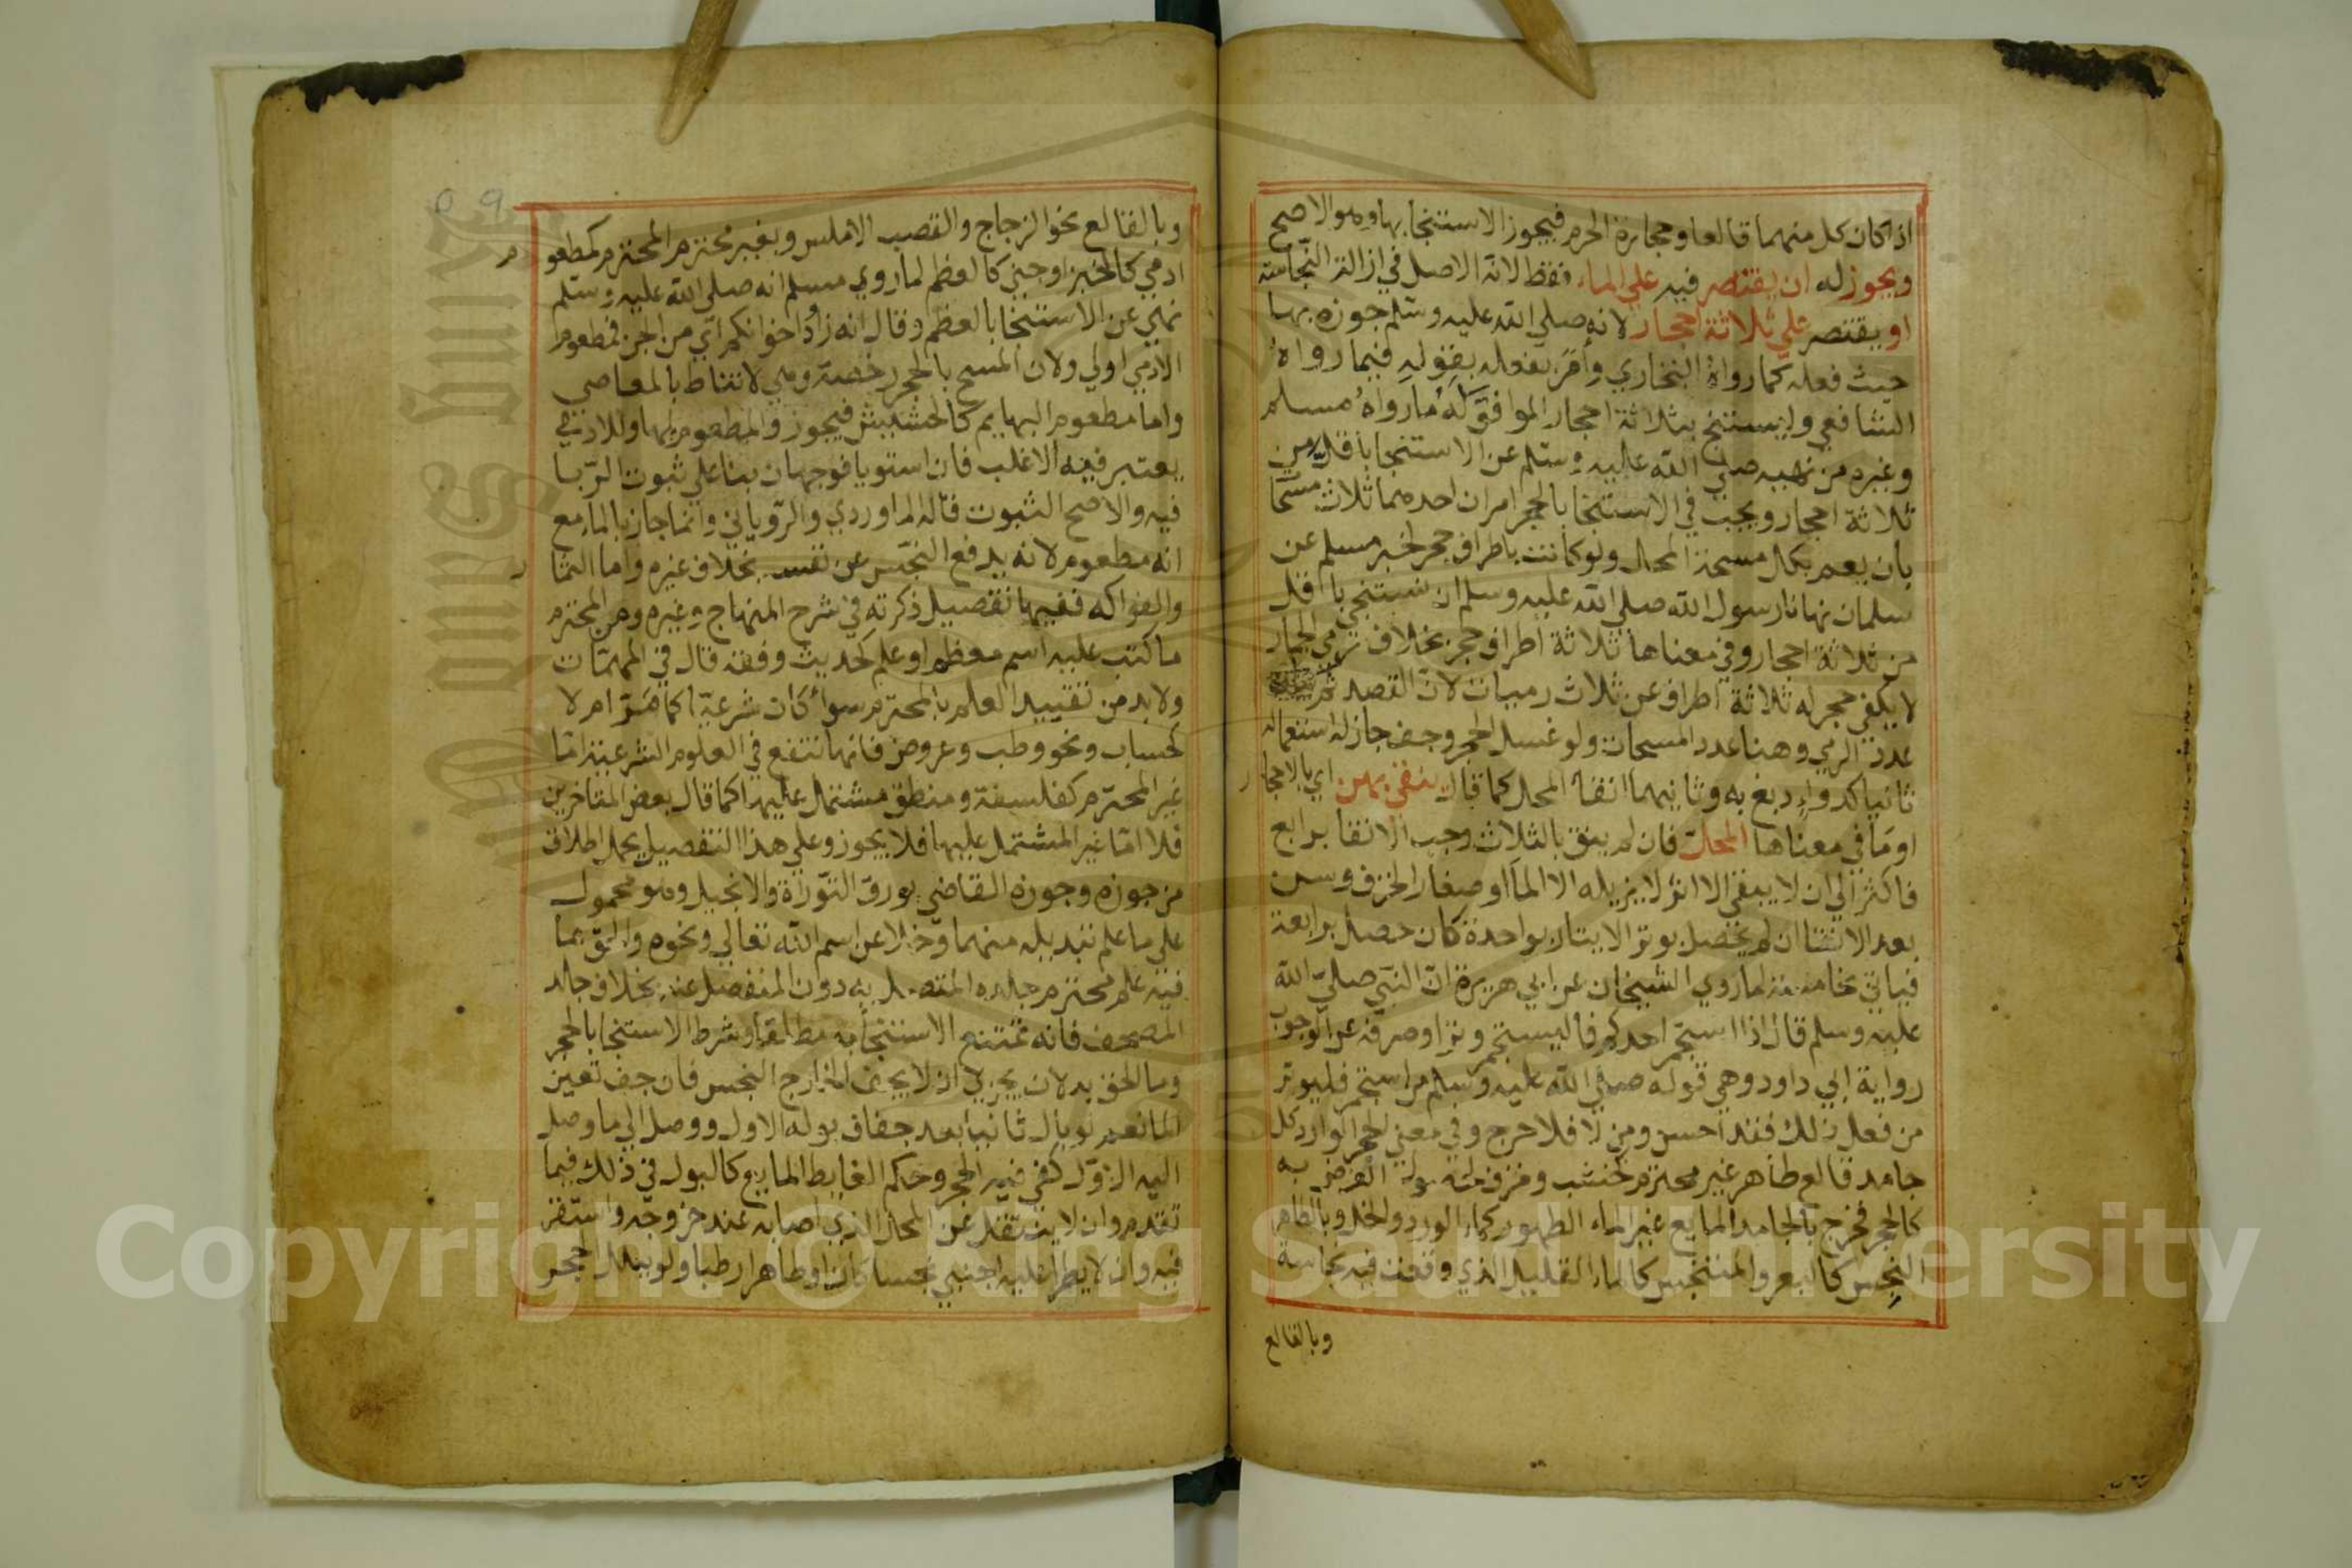 اذا كان كل منهما قالعا وحجارة الحرم فيجوز الاستنجا بها وهو الاصح
ويجوز له ان يقتصر فيه علي الماء فقط لانه الاصل في ازالة النجاسة
او يقتصر علي ثلاثة احجار لانه صلي الله عليه وسلم جوزه بها
حيث فعله كما رواه البخاري وأمر بفعله بقوله فيما رواه
الشافعي وليستنج بثلاثة احجار الموافق له ما رواه مسلم
وغيره من نهيه صلي الله عليه وسلم عن الاستنجا باقل من
ثلاثة احجار ويجب في الاستنجا بالحجر امران احدهما ثلاث مسحا
بان يعم بكل مسحة المحل ولو كانت باطراف حجر لخبر مسلم عن
سلمان نهانا رسول الله صلي الله عليه وسلم ان نستنجي باقل
من ثلاثة احجار وفي معناها ثلاثة اطراف حجر بخلاف رمي الجمار
لا يكفي حجر له ثلاثة اطراف عن ثلاث رميات لان القصد ثم
عدد الرمي وهنا عدد المسحات ولو غسل الحجر وجف جاز له استعماله
ثانيا كدواء دبغ به وثانيهما انقا المحل كما قال ينقي بهن اي بالاحجا
ر
او ما في معناها المحل فان لم ينق بالثلاث وجب الانقا برابع
فاكثر الي ان لا يبقي الا اثر لا يزيله الا الما او صغار الخزف وسن
بعد الانقا ان لم يحصل بوتر الايتار بواحدة كان حصل برابعة
فياتي بخامسة لما روي الشيخان عن ابي هريرة ان النبي صلي الله
عليه وسلم قال اذا استجمر احدكم فاليستجمر وترا وصرفه عن الوجوب
رواية ابي داود وهي قوله صلي الله عليه وسلم من استجمر فليوتر
من فعل ذلك فقد احسن ومن لا فلا حرج وفي معني الحجر الوارد كل
جامد قالع طاهر غير محترم كخشب وخزف الغرض به
كالحجر فخرج بالجامد المايع غير الماء الطهور كماء الورد والخل وبالطاهر
النجس كالبعر والمتنجس كالماء القليل الذي وقعت فيه نجاسة
وبالقالع
٥٩
وبالقالع نحو الزجاج والقصب الاملس وبغير محترم المحترم كمطعو
م
ادمي كالخبز او جني كالعظم لما روي مسلم انه صلي الله عليه وسلم
نهي عن الاستنجا بالعظم وقال انه زاد اخوانكم اي من الجن فمطعوم
الادمي اولي ولان المسح بالحجر رخصة وهي لا تناط بالمعاصي
واما مطعوم البهايم كالحشيش فيجوز والمطعوم لها وللادمي
يعتبر فيه الاغلب فان استويا فوجهان بنا علي ثبوت الربا
فيه والاصح الثبوت قاله الماوردي والروياني وانما جاز بالما مع
انه مطعوم لانه يدفع النجس عن نفسه بخلاف غيره واما الثما
ر
والفواكه ففيها تفصيل ذكرته في شرح المنهاج وغيره ومن المحترم
ما كتب عليه اسم معظم او علم كحديث وفقه قال في المهمات
ولا بد من تقييد العلم بالمحترم سوا كان شرعيا كما مر ام لا
كحساب ونحو وطب وعروض فانها تنفع في العلوم الشرعية اما
غير المحترم كفلسفة ومنطق مشتمل عليها كما قال بعض المتاخرين
فلا اما غير المشتمل عليها فلا يجوز وعلي هذا التفصيل يحمل اطلاق
من جوزه وجوزه القاضي بورق التوراة والانجيل وهو محمول
علي ما علم تبديله منهما وخلا عن اسم الله تعالي ونحوه والحق بما
فيه علم محترم جلده المتصل به دون المنفصل عنه بخلاف جلد
المصحف فانه يمتنع الاستنجا به مطلقا وشرط الاستنجا بالحجر
وما الحق به لان يجزي ان لا يجف الخارج النجس فان جف تعين
الما نعم لو بال ثانيا بعد جفاف بوله الاول ووصل الي ما وصل
اليه الاول كفي فيه الحجر وحكم الغايط المايع كالبول في ذلك فيما
تقدم وان لا ينتقل عن المحل الذي اصابه عند خروجه واستقر
فيه وان لا يطرا عليه اجنبي نجسا كان او طاهرا رطبا ولو ببلل الحجر
Copyright © King Saud University